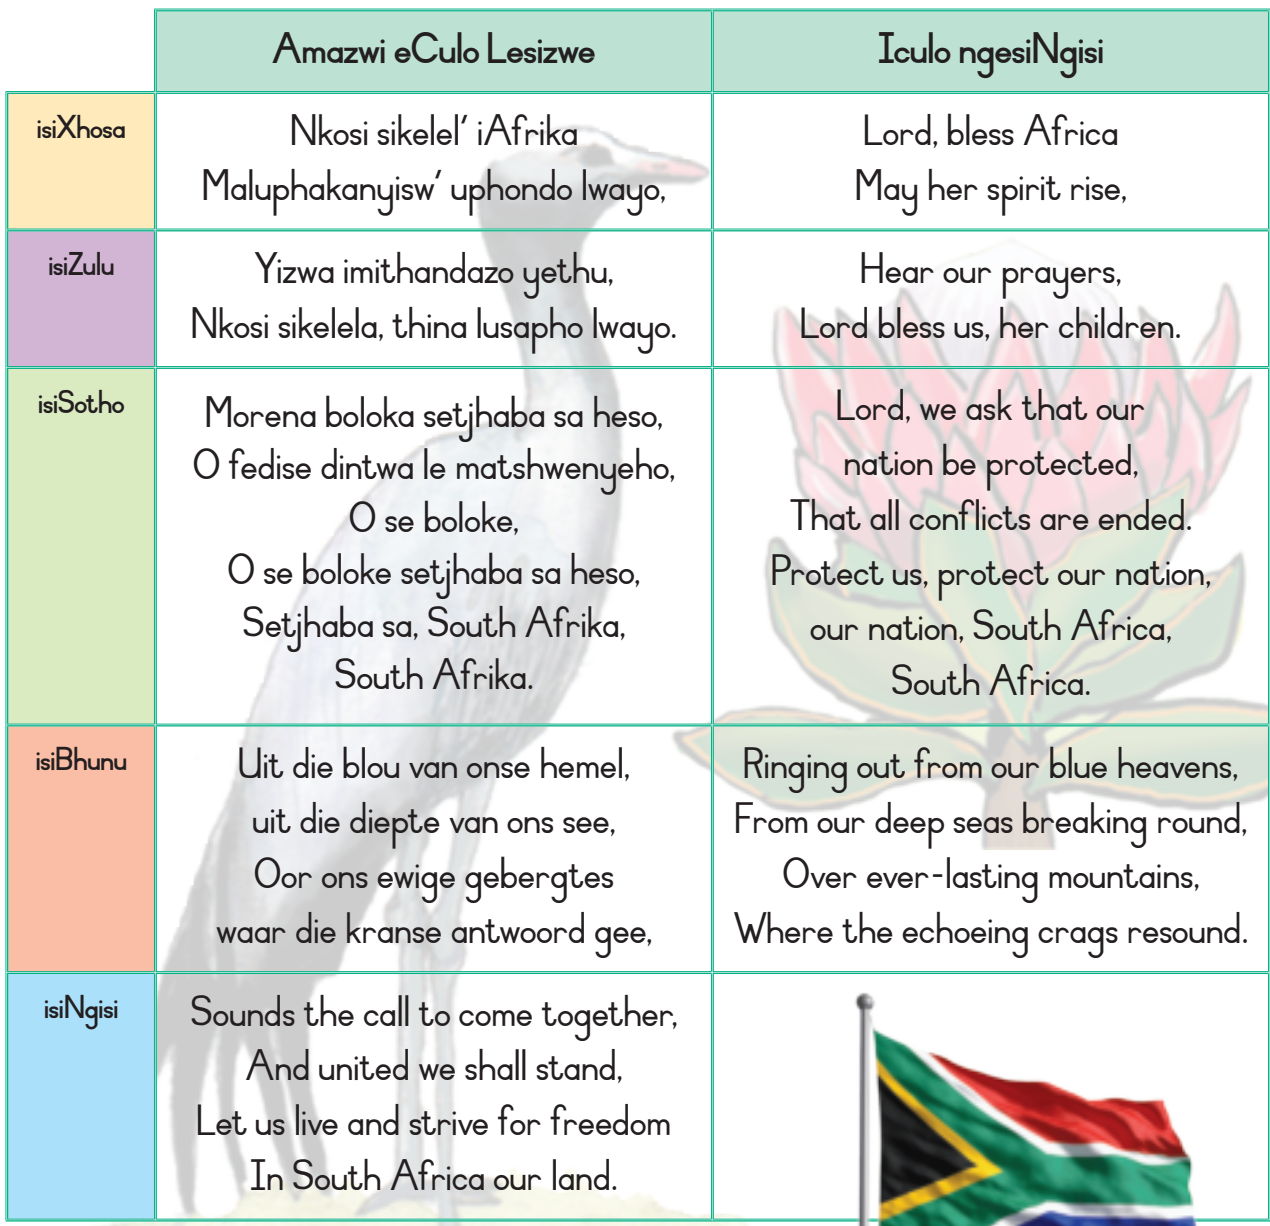 Amazwi eCulo Lesizwe
Iculo ngesiNgisi
isiXhosa
Nkosi sikelel' iAfrika
Maluphakanyisw' uphondo lwayo,
Lord, bless Africa
May her spirit rise,
isiZulu
Yizwa imithandazo yethu,
Nkosi sikelela, thina lusapho lwayo.
Hear our prayers,
Lord bless us, her children.
isiSotho
Morena boloka setjhaba sa heso,
O fedise dintwa le matshwenyeho,
O se boloke,
O se boloke setjhaba sa heso,
Setjhaba sa, South Afrika,
South Afrika.
Lord, we ask that our
nation be protected,
That all conflicts are ended.
Protect us, protect our nation,
our nation, South Africa,
South Africa.
isiBhunu
Uit die blou van onse hemel,
uit die diepte van ons see,
Oor ons ewige gebergtes
waar die kranse antwoord gee,
Ringing out from our blue heavens,
From our deep seas breaking round,
Over ever-lasting mountains,
Where the echoeing crags resound.
isiNgisi
Sounds the call to come together,
And united we shall stand,
Let us live and strive for freedom
In South Africa our land.